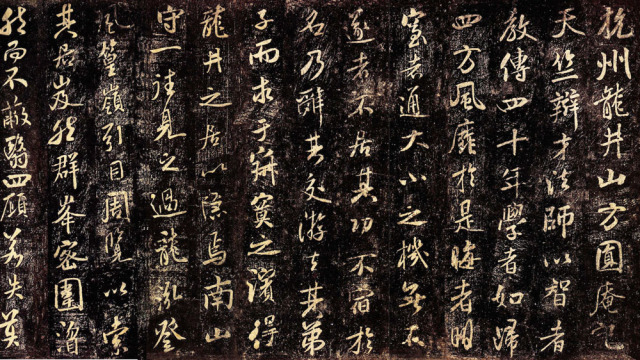 杭州龍井山方圓庵記
天竺辯才法師以智者
教傳四十年學者如歸
四方風靡於是晦者明
窒者通大小之機無不
遂者不居其功不宿於
名乃辭其交游去其弟
子而求于寂寞之濱得
龍井之居以隱焉南山
守一往見之過龍泓登
風篁嶺引目周覽以索
其居岌然群峯密圍溜
然而不蔽翳四顧若失莫